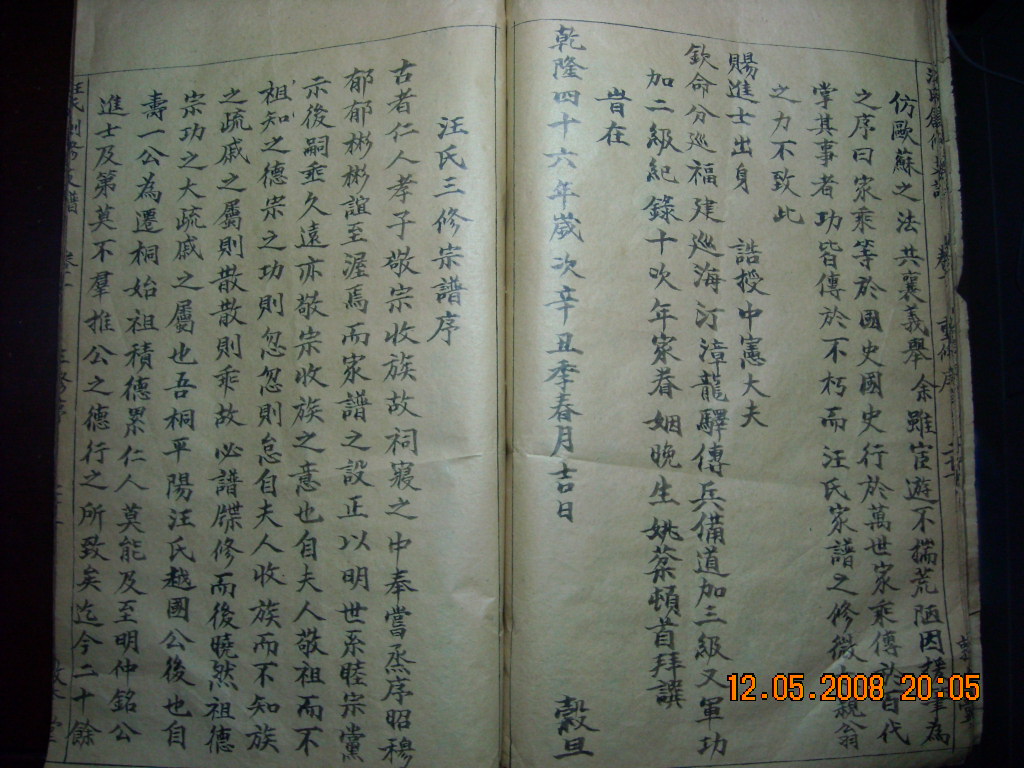 仿歐蘇之法共襄義舉余雖宦遊不揣荒陋因為
之序曰家乘等於國史國史行於萬世家乘傳於百代
掌其事者功皆傳於不朽而汪氏家譜之修微親翁
之力不致此
賜進士出身 誥授中憲大夫
欽命分巡福建巡海汀漳龍驛傳兵備道加三級又軍功
加二級紀錄十次年家眷姻晚生姚棻頓首拜譔
旹在
乾隆四十六年歲次辛丑季春月吉日 穀旦
汪氏三修宗譜序
古者仁人孝子敬宗收族故祠寢之中奉嘗烝序昭穆
郁郁彬彬誼至渥焉而家譜之設正以明世系睦宗黨
示後嗣垂久遠亦敬宗收族之意也自夫人敬祖而不
祖知之德宗之功則忽忽則怠自夫人收族而不知族
之疏戚之屬則散散則乖故必譜牒修而後曉然祖德
宗功之大疏戚之屬也吾桐平陽汪氏越國公後也自
壽一公為遷桐始祖積德累仁人莫能及至明仲銘公
進士及第莫不羣推公之德行之所致矣迄今二十餘
12.05.2008 20:05